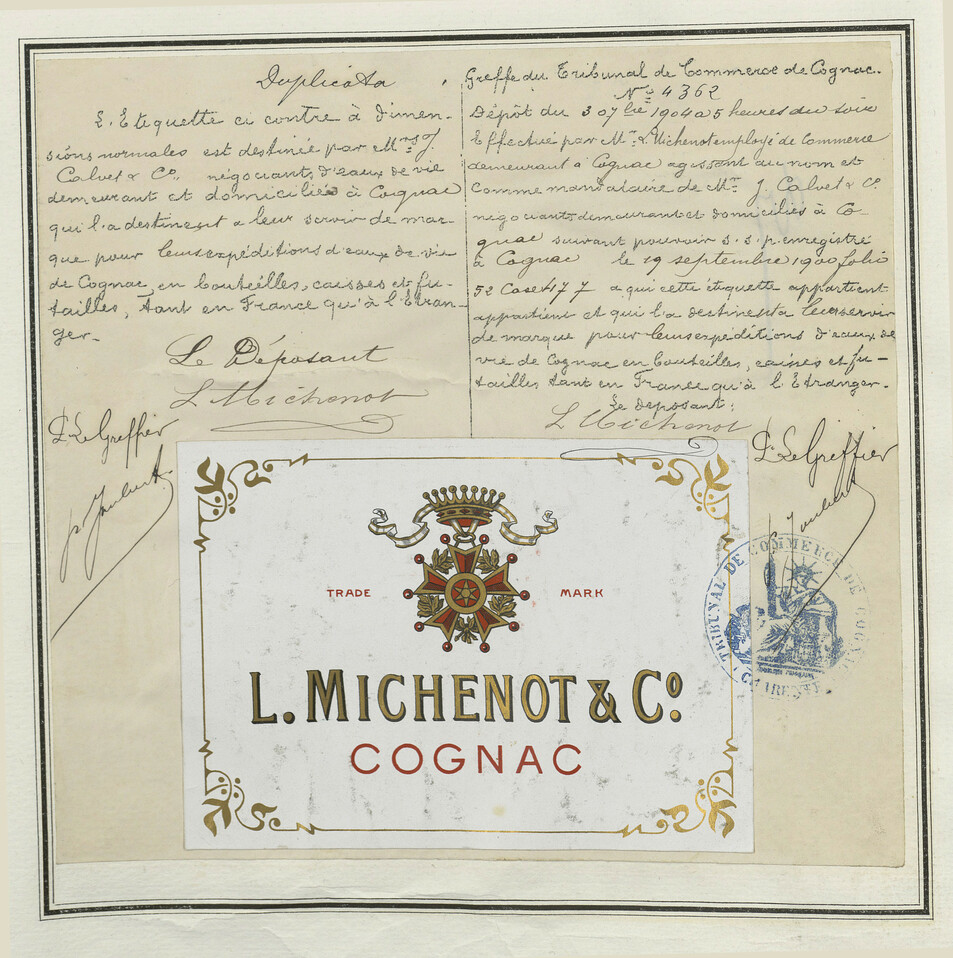 Duplicata
L'Etiquette ci contre à dimen-
sions normales est destinée par Mrs J.
Calvet & Co, négociants d'eaux de vie
demeurant et domiciliés à Cognac
qui l'a destinent a leur servir de mar-
que pour leurs expéditions d'eaux de vie
de Cognac, en bouteilles, caisses et fu-
tailles, tant en France qu'à l'Etran-
ger.
Le Déposant
L Michenot
P. Le Greffier
Greffe du Tribunal de Commerce de Cognac.
No 4362
Dépôt du 3 07bre 1904 à 5 heures du soir
Effectué par Mr L. Michenot employé de Commerce
demeurant à Cognac agissant au nom et
comme mandataire de Mrs J. Calvet & Co
négociants demeurant et domiciliés à Co-
gnac suivant pouvoir s. s. p. enregistré
à Cognac le 19 septembre 1900 folio
52 Case 477 a qui cette étiquette appartient
appartient et qui l'a destinent a leur servir
de marque pour leurs expéditions d'eaux de
vie de Cognac en bouteilles, caisses et fu-
tailles tant en France qu'à l'Etranger.
Le déposant:
L Michenot
P. Le Greffier
TRADE MARK
L. MICHENOT & Co.
COGNAC
TRIBUNAL DE COMMERCE DE COGNAC
CHARENTE